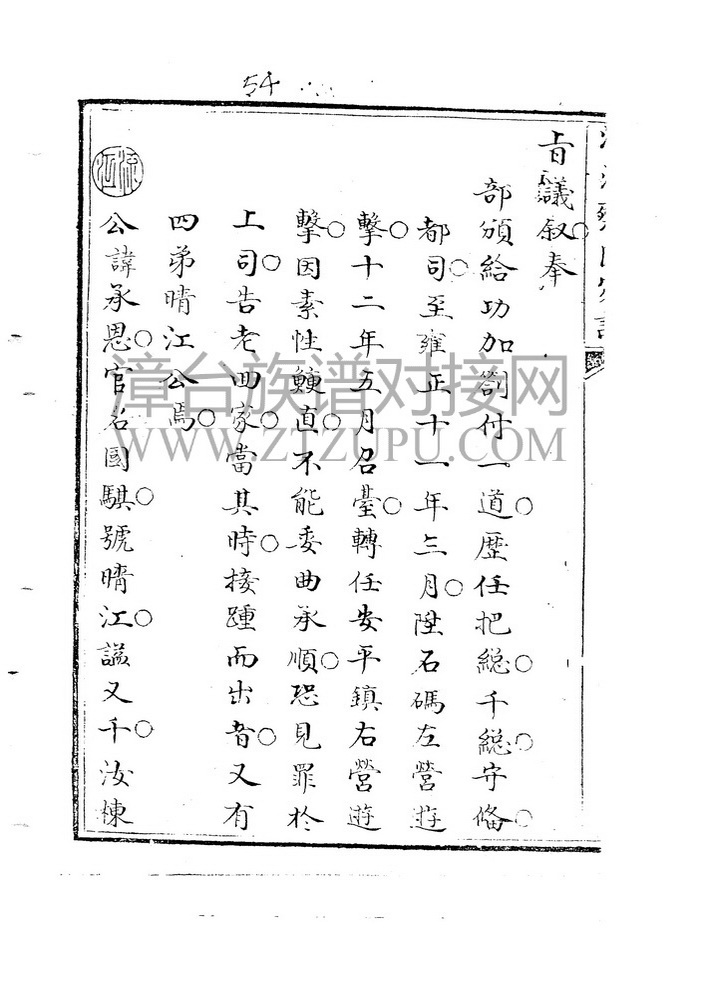 54
旨議叙奉
部頒給功加劄付一道歷任把総千総守俻
都司至雍正十一年三月陞石碼左營遊
擊十二年五月召臺轉任安平鎮右營遊
擊因素性鯁直不能委曲承順恐見罪於
上司告老回家當其時接踵而出者又有
四弟晴江公焉
公諱承恩官名國騏號晴江諡又千汝棟
流江
漳台族谱对接网
WWW.ZTZUPU.COM